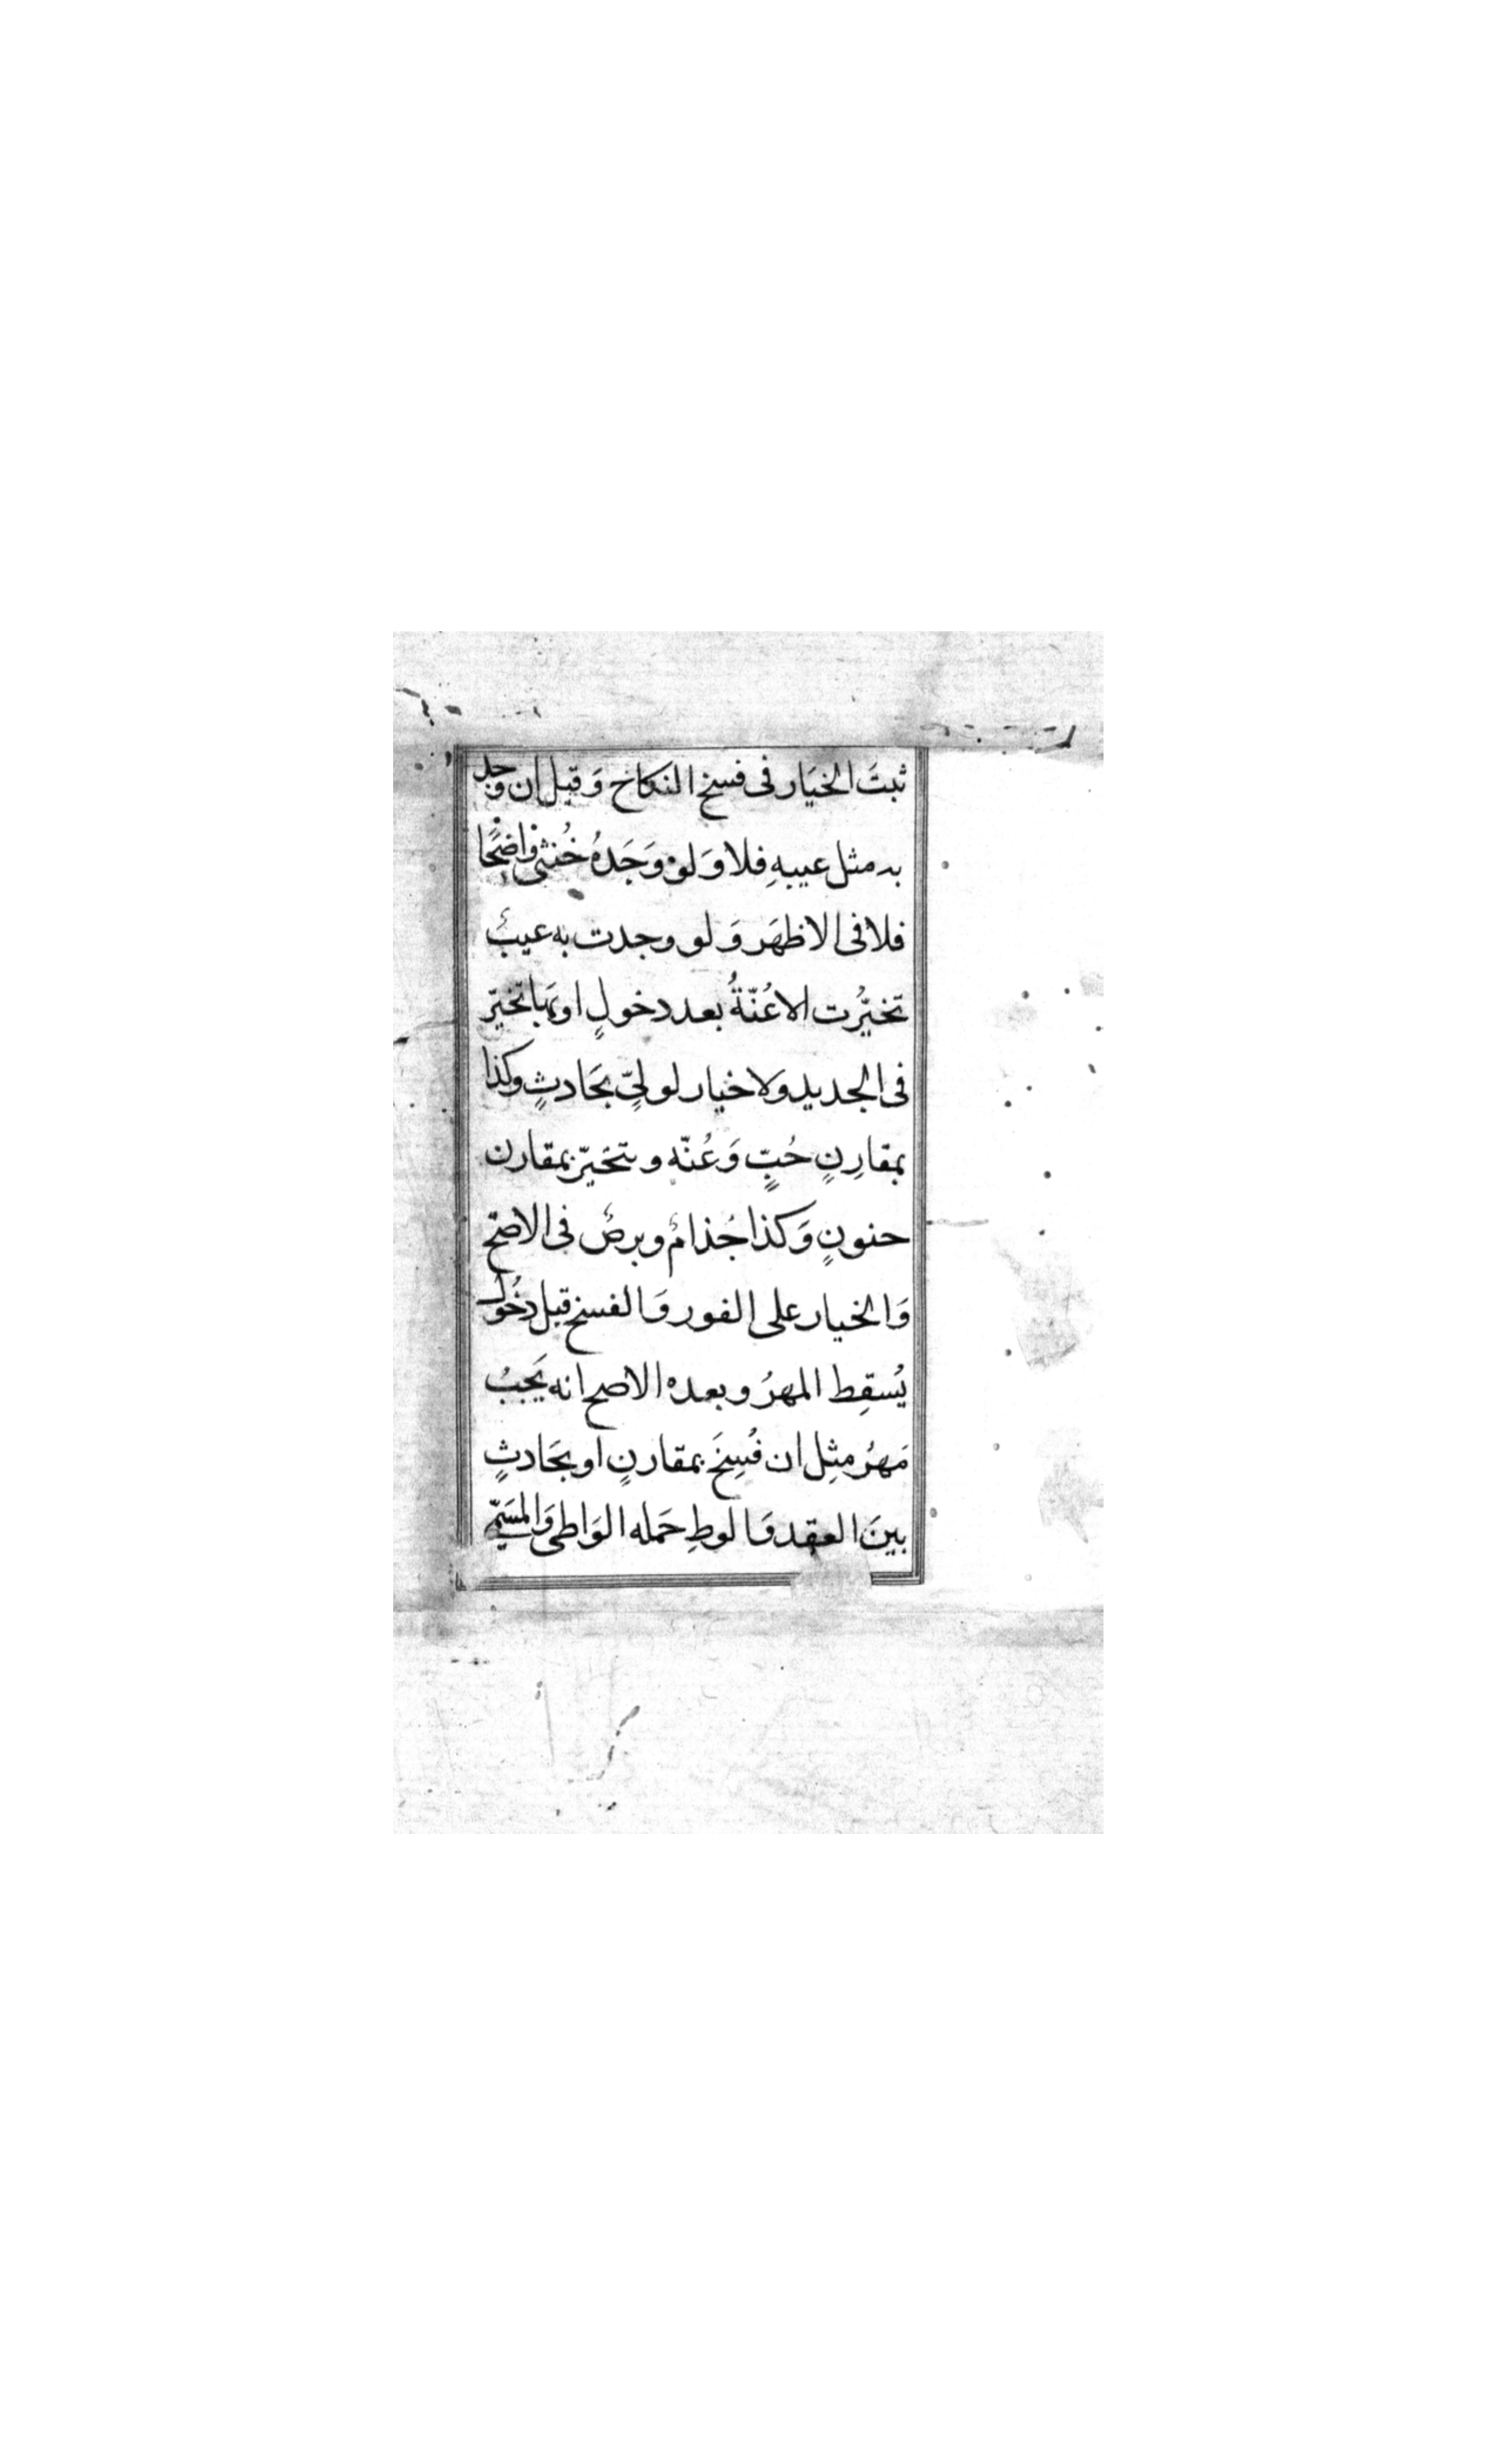 ثبتَ الخيَار فى فسخ النكاح وَقيل ان وجد
به مثل عيبهِ فلا وَلوْ وَجَدهُ خُنثى واضحًا
فلا فى الاظهَر وَلو وجدت به عيبٌ
تخيّرُت الاعُنّةُ بعد دخولٍ او بهَا تخيّر
فى الجديد ولاخيار لولىٍّ بحَادثٍ وكذا
بمقارِنٍ حُبٍّ وَعُنّه ويتخيّر بمقارن
حنونٍ وَكذا جُذامٌ وبرصٌ فى الاصحّ
وَالخيار على الفور وَالفسخ قبل دخُول
يُسقِط المهرُ وبعده الاصح انه يَجبُ
مَهرُ مثِل ان فُسِخَ بمقارنٍ او بحَادثٍ
بينَ العقد وَالوطِ حَمله الوَاطى وَالمسَمّى